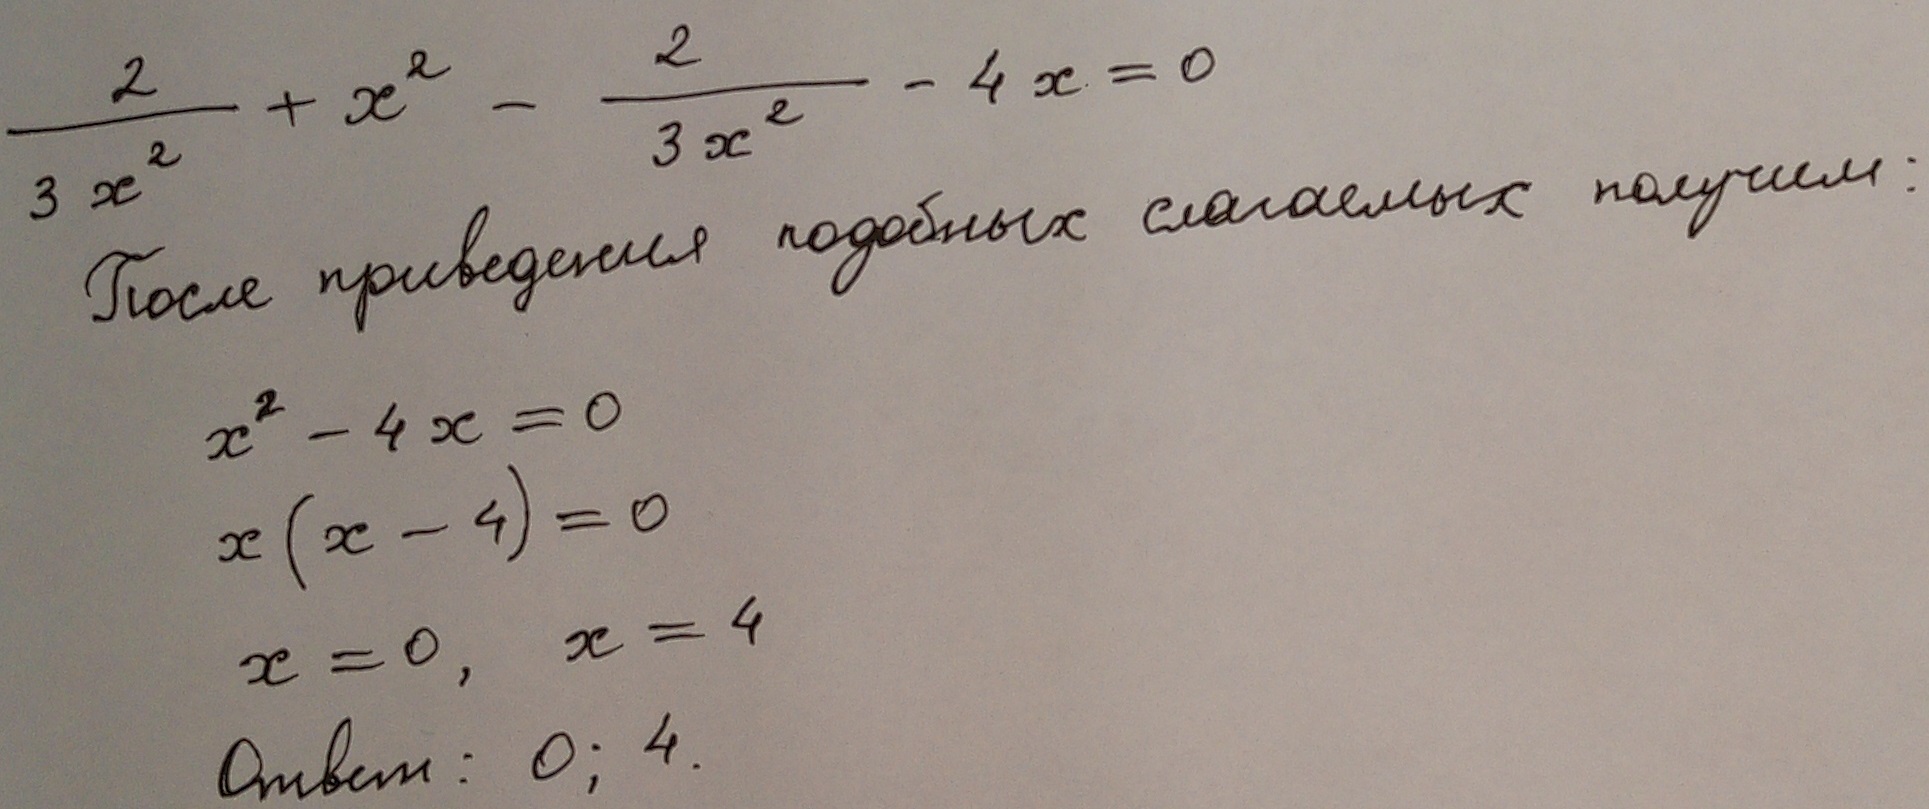 2/(3x²) + x² - 2/(3x²) - 4x = 0
После приведения подобных слагаемых получим:
x² - 4x = 0
x(x - 4) = 0
x = 0, x = 4
Ответ: 0; 4.